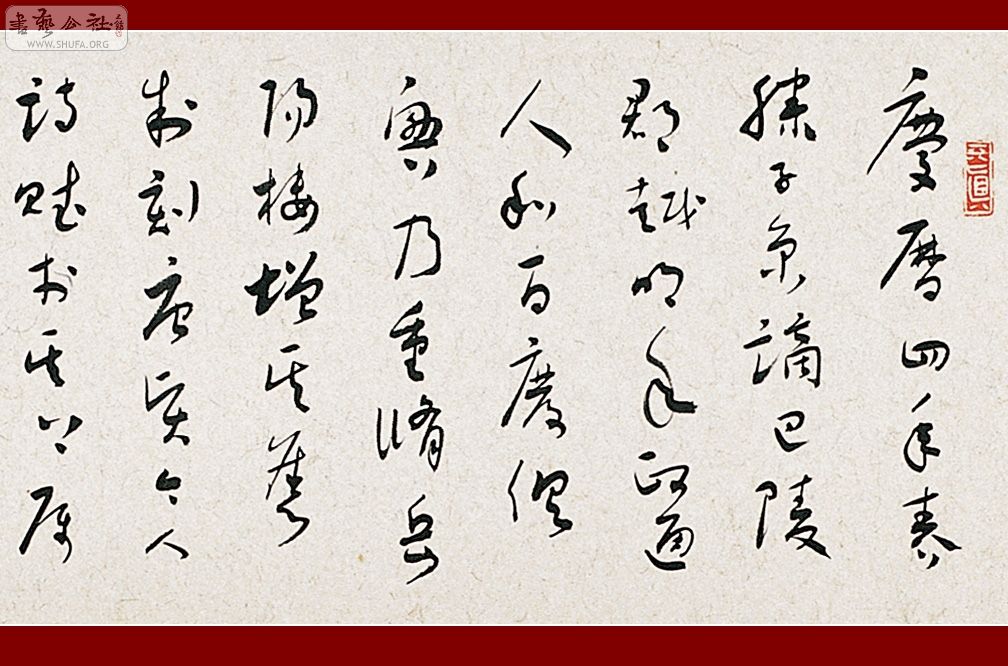 書藝公社
WWW.SHUFA.ORG
慶曆四年春
滕子京謫巴陵
郡越明年政通
人和百廢俱
興乃重脩岳
陽樓增其舊
制刻唐賢今人
詩賦於其上屬